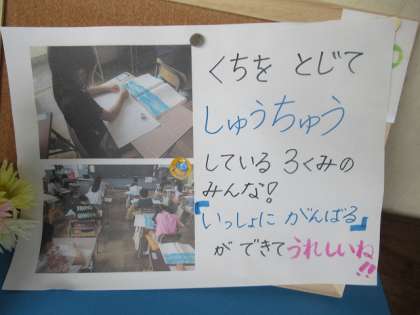 くちを とじて
しゅうちゅう
している 3くみの
みんな!
「いっしょに がんばる」
が できて うれしいね!!